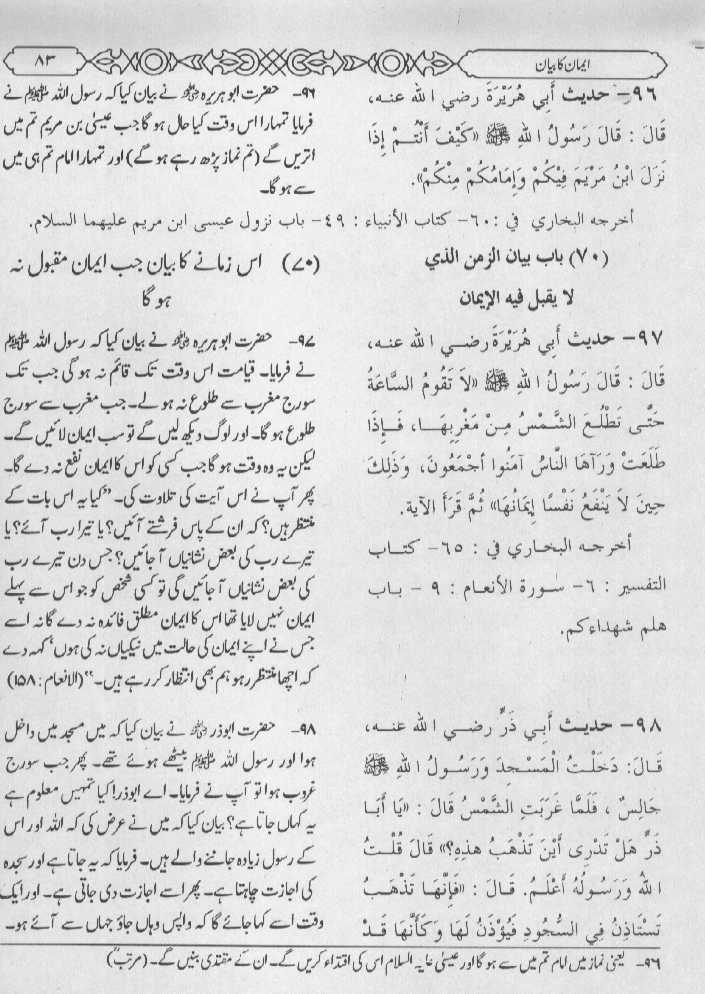 ایمان کا بیان
۸۳
۹۶- حديث أَبِي هُرَيْرَةَ رضي الله عنه،
قَالَ : قَالَ رَسُولُ اللهِ ﷺ «كَيْفَ أَنْتُمْ إِذَا
نَزَلَ ابْنُ مَرْيَمَ فِيكُمْ وَإِمَامُكُمْ مِنْكُمْ».
۹۶- حضرت ابوہریرہ رضی اللہ عنہ نے بیان کیا کہ رسول اللہ ﷺ نے
فرمایا تمہارا اس وقت کیا حال ہو گا جب عیسیٰ بن مریم تم میں
اتریں گے (تم نماز پڑھ رہے ہو گے) اور تمہارا امام تم ہی میں
سے ہو گا۔
أخرجه البخاري في : ٦٠- كتاب الأنبياء : ٤٩- باب نزول عيسى ابن مريم عليهما السلام.
(۷۰) باب بيان الزمن الذي
لا يقبل فيه الإيمان
(۷۰) اس زمانے کا بیان جب ایمان مقبول نہ
ہو گا
۹۷- حديث أَبِي هُرَيْرَةَ رضي الله عنه،
قَالَ : قَالَ رَسُولُ اللهِ ﷺ «لاَ تَقُومُ السَّاعَةُ
حَتَّى تَطْلُعَ الشَّمْسُ مِنْ مَغْرِبِهَا، فَإِذَا
طَلَعَتْ وَرَآهَا النَّاسُ آمَنُوا أجْمَعُونَ، وَذَلِكَ
حِينَ لاَ يَنْفَعُ نَفْسًا إِيمَانُهَا» ثُمَّ قَرَأَ الآيةَ.
أخرجه البخاري في : ٦٥- كتاب
التفسير : ٦- سورة الأنعام : ٩ - باب
هلم شهداءكم.
۹۷- حضرت ابوہریرہ رضی اللہ عنہ نے بیان کیا کہ رسول اللہ ﷺ
نے فرمایا۔ قیامت اس وقت تک قائم نہ ہو گی جب تک
سورج مغرب سے طلوع نہ ہو لے۔ جب مغرب سے سورج
طلوع ہو گا۔ اور لوگ دیکھ لیں گے تو سب ایمان لائیں گے۔
لیکن یہ وہ وقت ہو گا جب کسی کو اس کا ایمان نفع نہ دے گا۔
پھر آپ نے اس آیت کی تلاوت کی۔ "کیا یہ اس بات کے
منتظر ہیں؟ کہ ان کے پاس فرشتے آئیں؟ یا تیرا رب آئے؟ یا
تیرے رب کی بعض نشانیاں آ جائیں؟ جس دن تیرے رب
کی بعض نشانیاں آ جائیں گی تو کسی شخص کو جو اس سے پہلے
ایمان نہیں لایا تھا اس کا ایمان مطلق فائدہ نہ دے گا نہ اسے
جس نے اپنے ایمان کی حالت میں نیکیاں نہ کی ہوں' کہہ دے
کہ اچھا منتظر رہو ہم بھی انتظار کر رہے ہیں۔" (الانعام : ۱۵۸)
۹۸- حديث أَبِي ذَرٍّ رضي الله عنه،
قَالَ: دَخَلْتُ الْمَسْجِدَ وَرَسُولُ اللهِ ﷺ
جَالِسٌ ، فَلَمَّا غَرَبَتِ الشَّمْسُ قَالَ : «يَا أَبَا
ذَرٍّ هَلْ تَدْرِى أَيْنَ تَذْهَبُ هذِهِ؟» قَالَ قُلْتُ
اللهُ وَرَسُولُهُ أَعْلَمُ. قَالَ : «فَإِنَّهَا تَذْهَبُ
تَسْتَأذِنُ فِي السُّجُودِ فَيُؤْذَنُ لَهَا وَكَأَنَّهَا قَدْ
۹۸- حضرت ابوذر رضی اللہ عنہ نے بیان کیا کہ میں مسجد میں داخل
ہوا اور رسول اللہ ﷺ بیٹھے ہوئے تھے۔ پھر جب سورج
غروب ہوا تو آپ نے فرمایا۔ اے ابوذر! کیا تمہیں معلوم ہے
یہ کہاں جاتا ہے؟ بیان کیا کہ میں نے عرض کی کہ اللہ اور اس
کے رسول زیادہ جاننے والے ہیں۔ فرمایا کہ یہ جاتا ہے اور سجدہ
کی اجازت چاہتا ہے۔ پھر اسے اجازت دی جاتی ہے۔ اور ایک
وقت اسے کہا جائے گا کہ واپس وہاں جاؤ جہاں سے آئے ہو۔
۹۶- یعنی نماز میں امام تم میں سے ہو گا اور عیسیٰ علیہ السلام اس کی اقتداء کریں گے۔ ان کے مقتدی بنیں گے۔ (مرتبؒ)